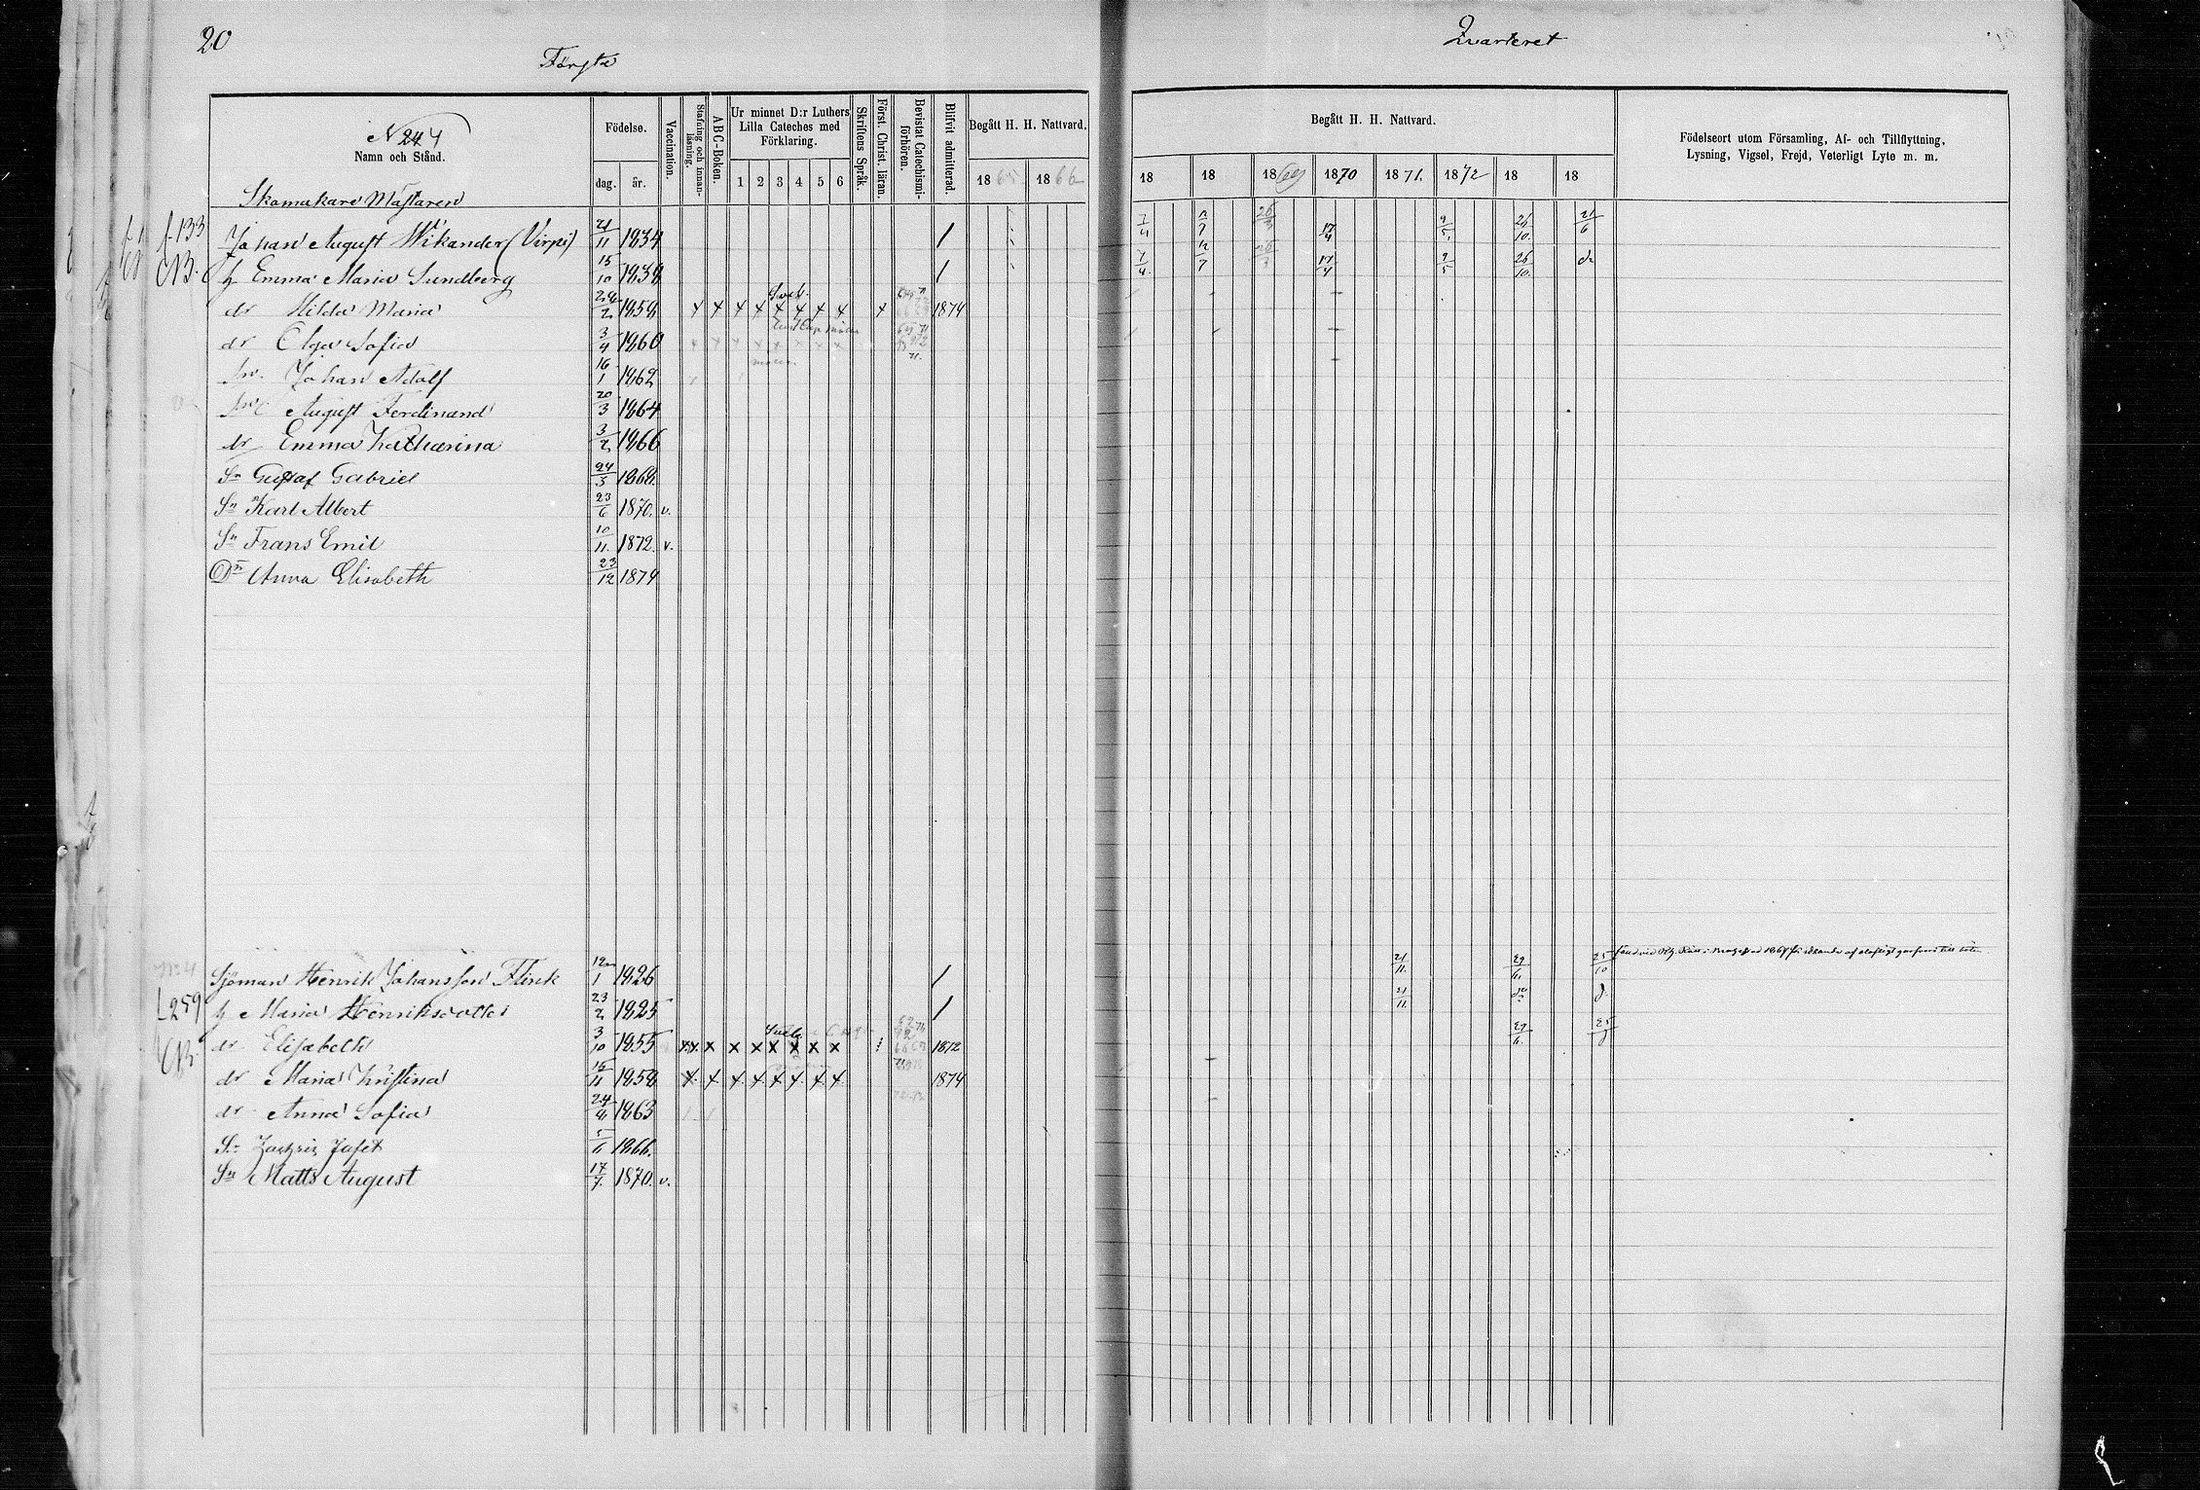 20
Förste
Qvarteret
N 24 4
Namn och Stånd.
Födelse.
dag.
år.
Vaccination.
Stafning och innanläsning.
ABC-Boken.
Ur minnet D:r Luthers Lilla Cateches med Förklaring.
1 2 3 4 5 6
Skriftens Språk.
Först. Christ. läran.
Bevistat Catechismi-förhören.
Blifvit admitterad.
Begått H. H. Nattvard.
1865 1866
Begått H. H. Nattvard.
18 18 1869 1870 1871. 1872 18 18
Födelseort utom Församling, Af- och Tillflyttning,
Lysning, Vigsel, Frejd, Veterligt Lyte m. m.
Skomakare Mästaren
f. 133 Johan August Wikander (Virpi) 21/11 1834 7/4 26/3 17/4 9/5 26/10 21/6
CB. h Emma Maria Sundberg 15/10 1838 7/4 17/4 9/5 26/10 do
dr Hilda Maria 1858 x x x x x x x x x 1874
dr Olga Sofia 3/4 1860 x x x x x x x x
sn. Johan Adolf 16/1 1862
sn August Ferdinand 20/3 1864
dr Emma Katharina 3/2 1866
Sn Gustaf Gabriel 24/5 1868.
Sn Karl Albert 23/6 1870. v.
Sn Frans Emil 10/11. 1872. v.
Dr Anna Elisabeth 23/12 1874
Sjöman Henrik Johansson Flink 12/1 1826 21/11. 29/6. 25/10
f. 259 h Maria Henriksdotter 23/2 1825 21/11 do
CB. dr Elisabeth 3/10 1855 x x x x x x x x 1872 29/6.
dr Maria Kristina 15/11 1858 x x x x x x x x 1874
dr Anna Sofia 1863
Sn Zachris Jafet 5/6 1866.
Sn Matts August 17/7. 1870. v.